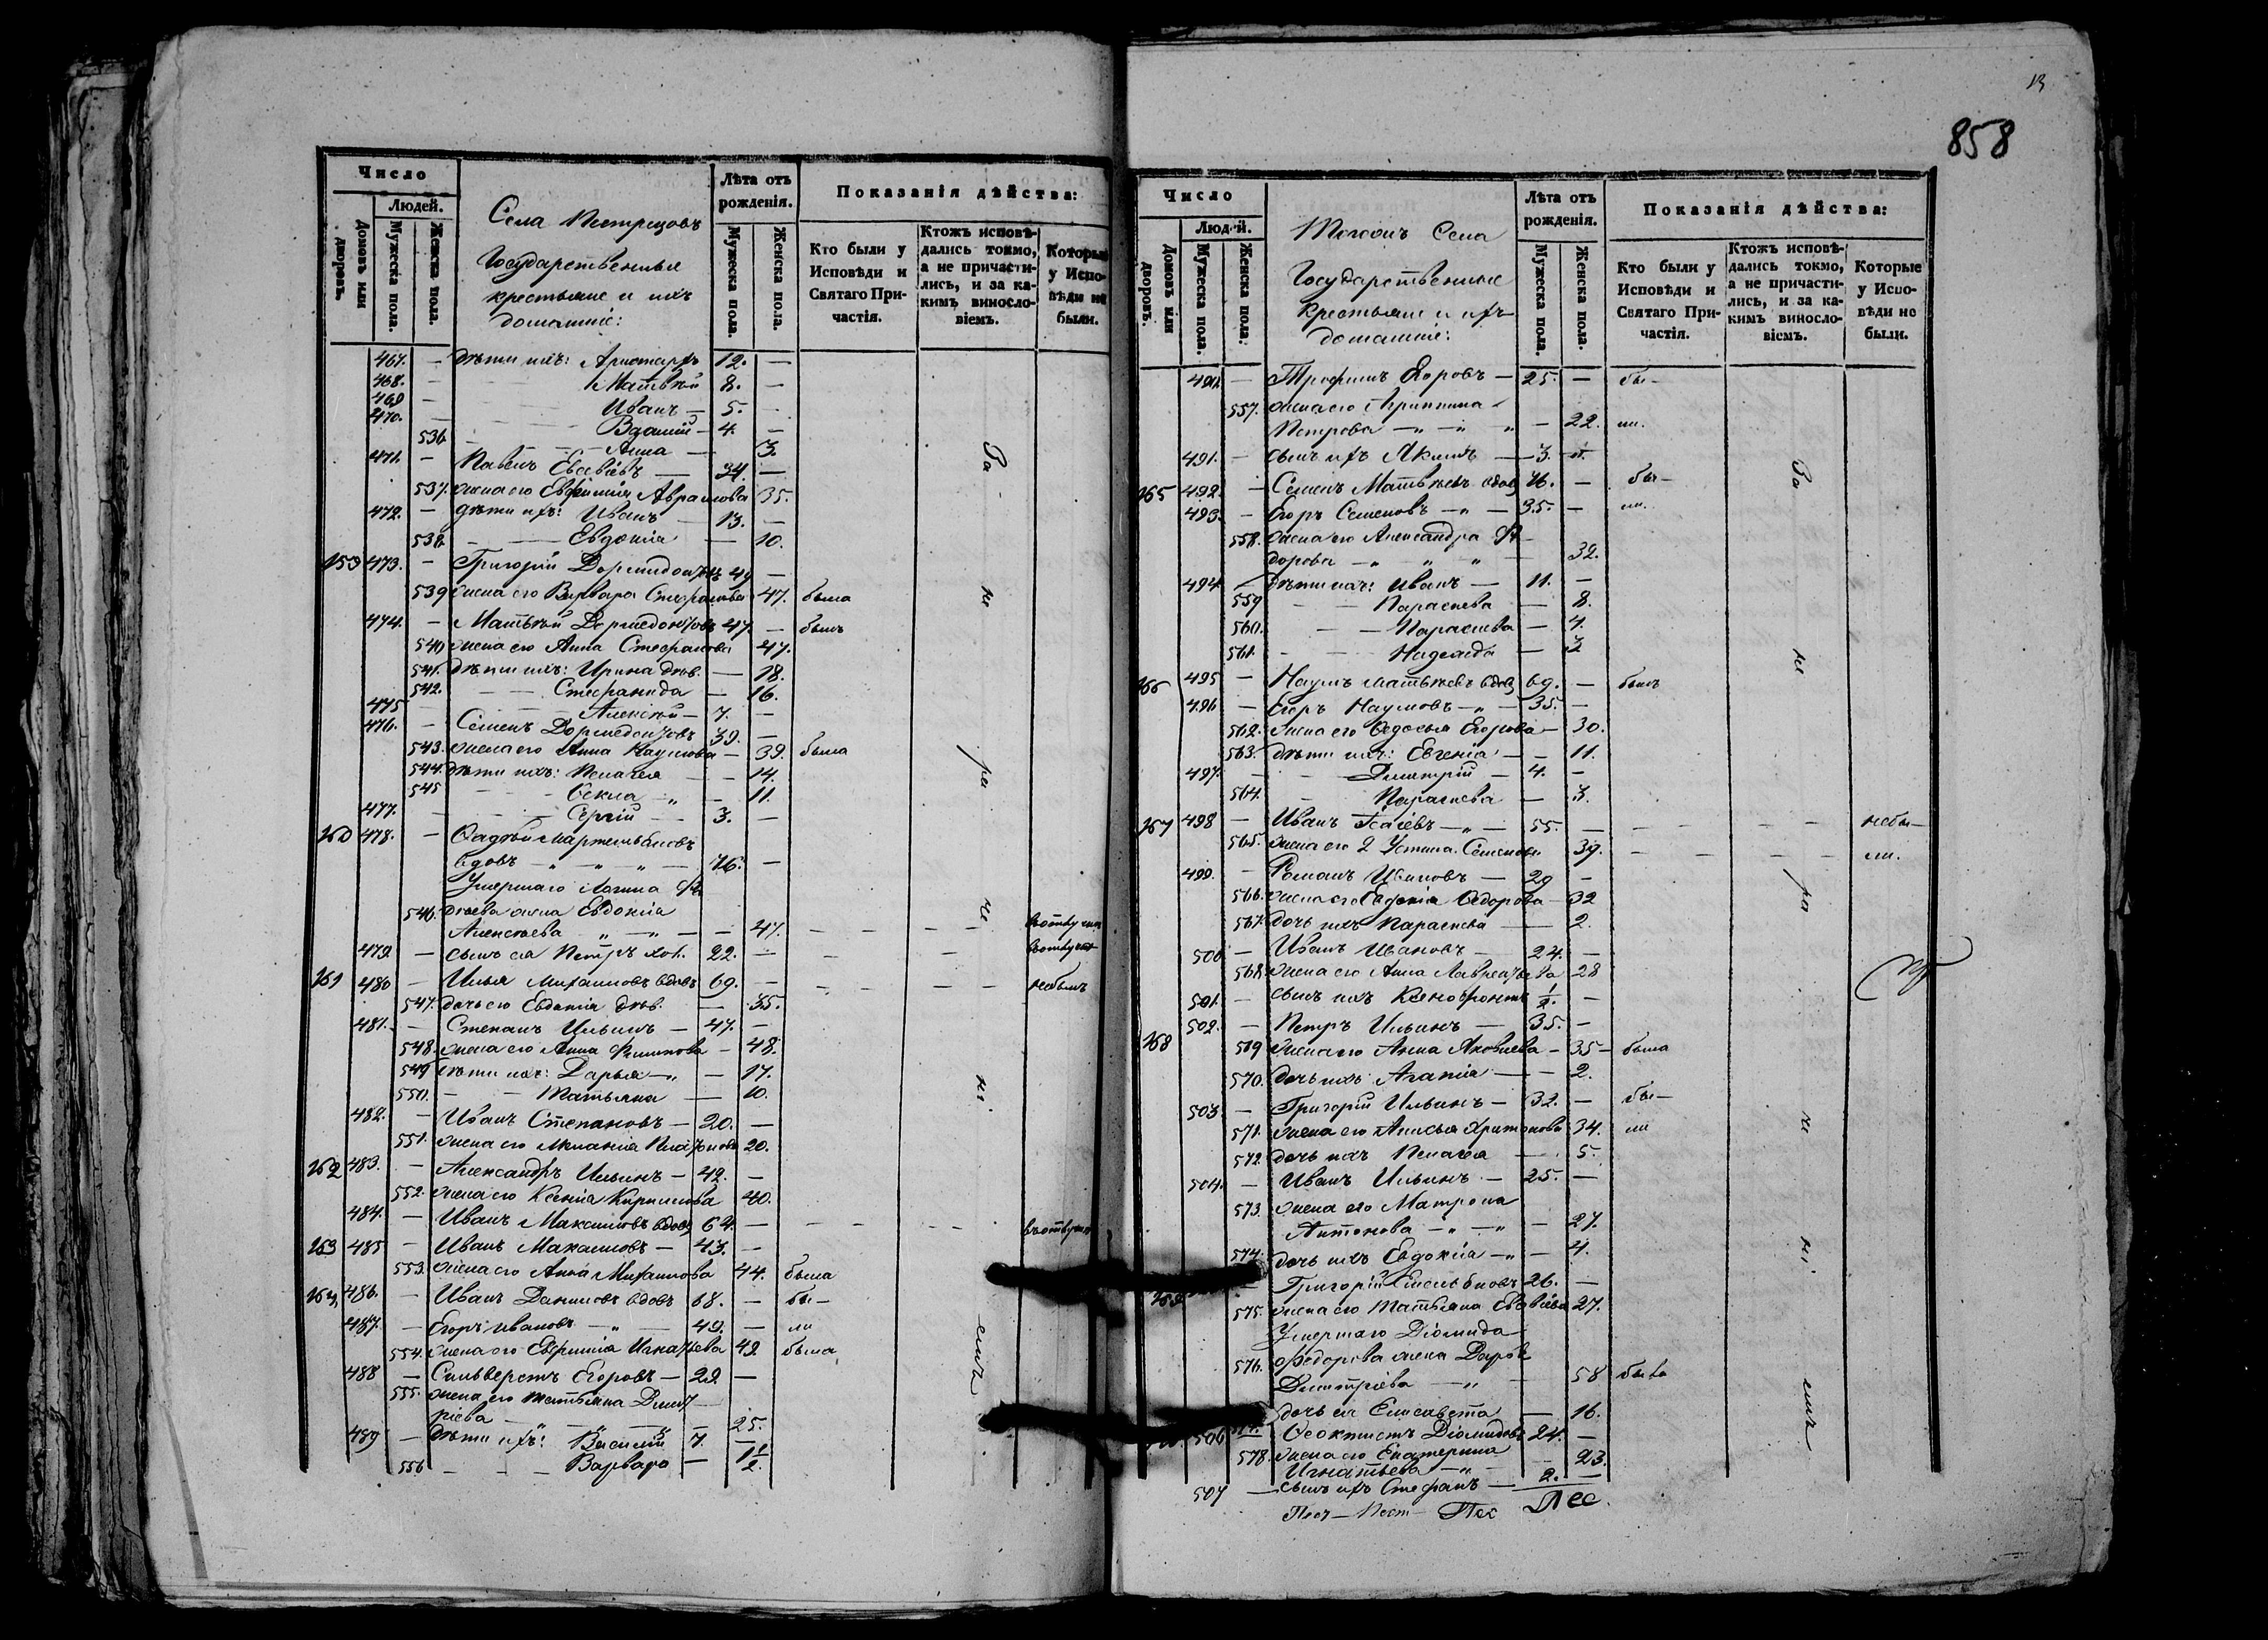 Число
Людей.
Домовъ или дворовъ.
Мужеска пола.
Женска пола.
Села Пестрецовъ
Государственныя
крестьяне и ихъ
домашніе:
Лѣта отъ рожденія.
Мужеска пола.
Женска пола.
Показанія дѣйства:
Кто были у Исповѣди и Святаго Причастія.
Ктожъ исповѣдались токмо, а не причастились, и за какимъ винословіемъ.
Которые у Исповѣди не были.
467. — дѣти ихъ: Аристархъ 12. —
468. — Матвѣй 8. —
469 — Иванъ — 5.
470. — 4. —
536. — Анна — 3.
471. — Павелъ Евсевіевъ — 34. —
537. жена его Евфимія Авраамова 35.
472. — дѣти ихъ: Иванъ — 13. —
538 — Евдокія — 10.
159 473. — Григорій Дормидонтовъ 49 —
539 жена его Варвара Стефанова 47. была
474. — Матвѣй Дормедонтовъ 47. — былъ
540 жена его Анна Стефанова 47.
541. дѣти ихъ: Ирина дѣв. — 18.
542. — Стефанида — 16.
475 — Алексѣй — 7. —
476. — Семенъ Дормедонтовъ 39. —
543. жена его Анна Наумова — 39. была
544. дѣти ихъ: Пелагея — 14.
545 — Ѳекла — 11.
477. — Сергій — 3. —
160 478. — Ѳадѣй Мартемьяновъ
вдовъ — 76. —
Умершаго Логина Ѳа
546. дѣева жена Евдокія
Алексѣева — 47. —
479. — сынъ ея Петръ хол. 22. —
161 480 — Илья Михаиловъ вдовъ 69. — небылъ
547. дочь его Евдокія дѣв. — 35.
481. — Степанъ Ильинъ — 47. —
548. жена его Анна Филипова — 48.
549 дѣти ихъ: Дарья — 17.
550. — Татьяна — 10.
482. — Иванъ Степановъ — 20. —
551. жена его Меланія Платонова 20.
162 483. — Александръ Ильинъ — 42. —
552. жена его Ксенія Кирилова 40.
484. — Иванъ Максимовъ вдовъ 64. —
163 485 — Иванъ Максимовъ — 43. —
553. жена его Анна Михаилова 44. была
164 486. — Иванъ Даниловъ вдовъ 68. — бы-
487. — Егоръ Ивановъ — 49. — ли
554. жена его Евфимія Игнатьева 49 была
488 — Сильверстъ Егоровъ — 29. —
555. жена его Татьяна Димит-
ріева — 25.
489 — дѣти ихъ: Василій 7. —
556 — Варвара — 1½.
За не ра че ні емъ
13
858
Число
Людей.
Домовъ или дворовъ.
Мужеска пола.
Женска пола.
Тогожъ Села
Государственные
крестьяне и ихъ
домашніе:
Лѣта отъ рожденія.
Мужеска пола.
Женска пола.
Показанія дѣйства:
Кто были у Исповѣди и Святаго Причастія.
Ктожъ исповѣдались токмо, а не причастились, и за какимъ винословіемъ.
Которые у Исповѣди не были.
490. — Трофимъ Егоровъ — 25. — бы-
557. жена его Агриппина
Петрова — 22. ли.
491. — сынъ ихъ Акимъ — 3.
165 492. — Семенъ Матвѣевъ вдовъ 76. — бы-
493. — Егоръ Семеновъ — 35. — ли.
558. жена его Александра Ѳе-
дорова — 32.
494. — дѣти ихъ: Иванъ — 11. —
559 — Параскева — 8.
560. — Параскева — 4.
561. — Надежда — 2
166 495 — Наумъ Матвѣевъ вдовъ 69. — былъ
496 — Егоръ Наумовъ — 35. —
562. жена его Ѳедосья Егорова — 30.
563. дѣти ихъ: Евгенія — 11.
497. — Димитрій — 4. —
564. — Параскева — 3.
167 498 — Иванъ Исаіевъ — 55. — небы-
565. жена его 2 Устина Семенова 39. — ли.
499. — Романъ Ивановъ — 29 —
566. жена его Евдокія Ѳедорова — 32
567. дочь ихъ Параскева — 2.
500 — Иванъ Ивановъ — 24. —
568. жена его Анна Лаврентьева 28
501. — сынъ ихъ Ксенофонтъ ½. —
502. — Петръ Ильинъ — 35. —
168 569 жена его Анна Яковлева — 35 — была
570. дочь ихъ Агапія — 2.
503. — Григорій Ильинъ — 32. — бы-
571. жена его Анисья Харитонова 34. ли
572. дочь ихъ Пелагея — 5.
504. — Иванъ Ильинъ — 25. —
573. жена его Матрона
Антонова — 27.
574. дочь ихъ Евдокія — 4.
169 — Григорій Емельяновъ 26. —
575. жена его Татьяна Евсевіева 27.
Умершаго Діомида
576. Ѳедорова жена Дарья
Димитріева — 58 была
дочь ея Елисавета — 16.
506 — Ѳеоктистъ Діомидовъ 24. —
578. жена его Екатерина
Игнатьева — 23.
507 — сынъ ихъ Стефанъ — 2. —
За не ра че ні емъ